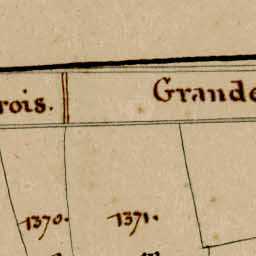 rois. Grande
1370. 1371.